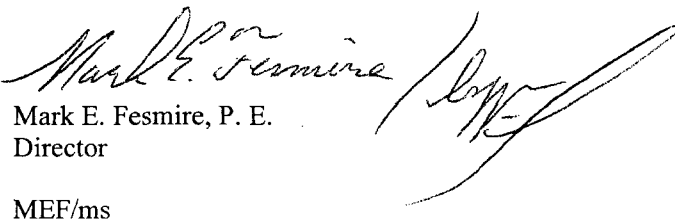 Mark E. Fesmire
Mark E. Fesmire, P. E.
Director
MEF/ms